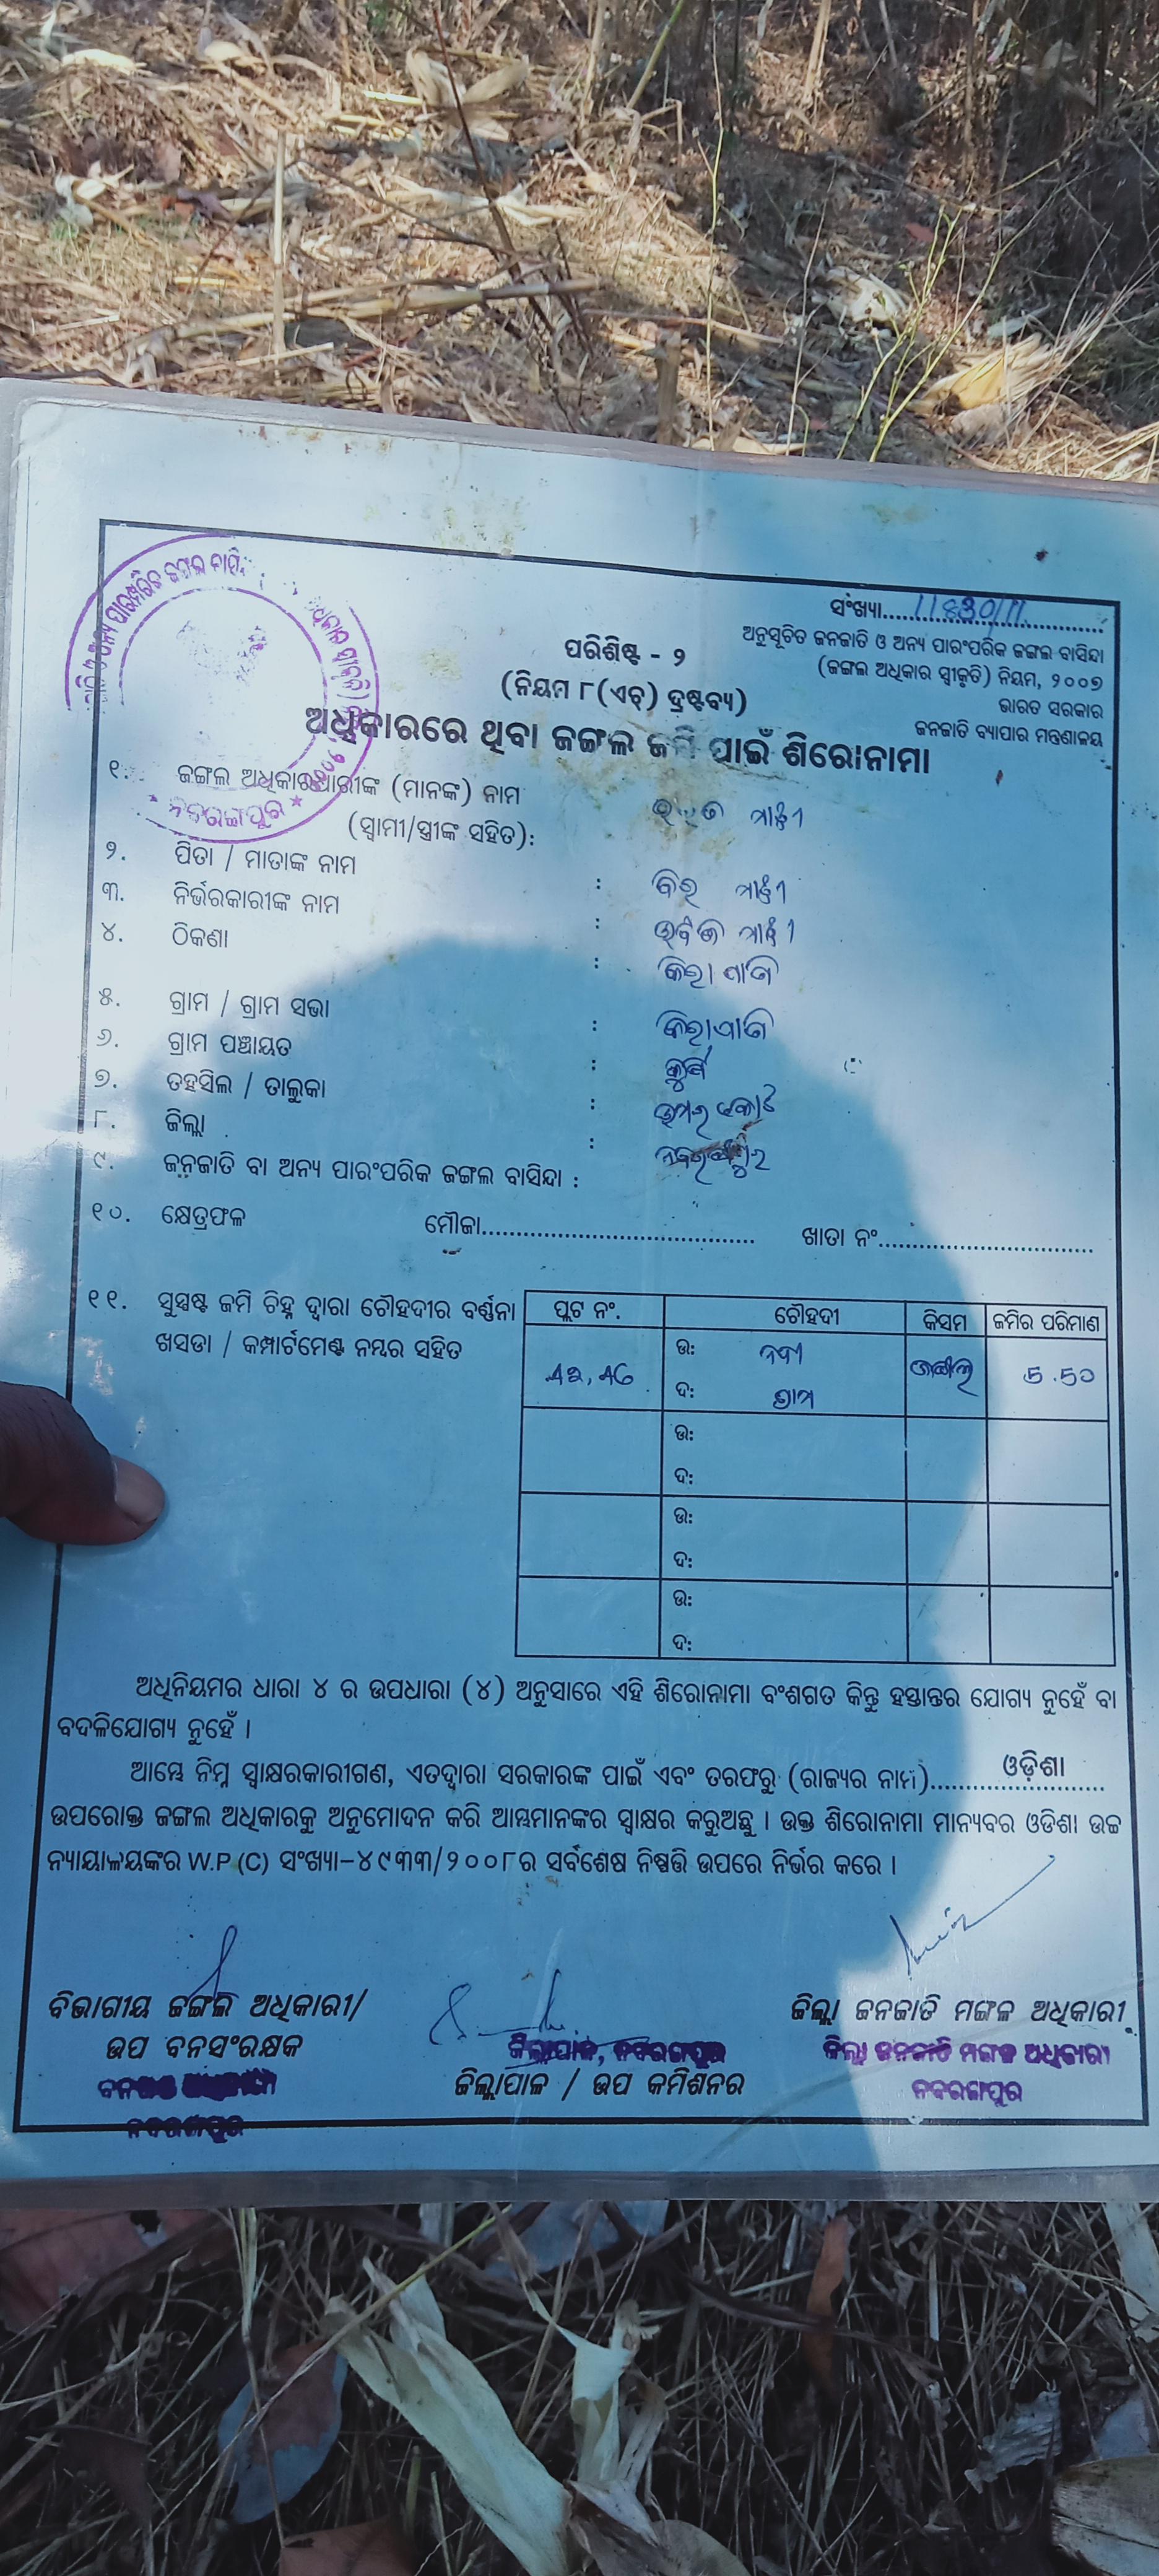 ସଂଖ୍ୟା
ଅନୁସୂଚିତ ଜନଜାତି ଓ ଅନ୍ୟ ପାରଂପରିକ ଜଙ୍ଗଲ ବାସିନ୍ଦା
(ଜଙ୍ଗଲ ଅଧିକାର ସ୍ୱୀକୃତି) ନିୟମ, ୨୦୦୭
ଭାରତ ସରକାର
ଜନଜାତି ବ୍ୟାପାର ମନ୍ତ୍ରଣାଳୟ
ପରିଶିଷ୍ଟ - ୨
(ନିୟମ ୮(ଏଚ୍) ଦ୍ରଷ୍ଟବ୍ୟ)
ଅଧିକାରରେ ଥିବା ଜଙ୍ଗଲ ଜମି ପାଇଁ ଶିରୋନାମା
୧. ଜଙ୍ଗଲ ଅଧିକାରଧାରୀଙ୍କ (ମାନଙ୍କ) ନାମ ମାଝୀ
(ସ୍ୱାମୀ/ସ୍ତ୍ରୀଙ୍କ ସହିତ):
ନବରଙ୍ଗପୁର
୨. ପିତା / ମାତାଙ୍କ ନାମ : ମାଝୀ
୩. ନିର୍ଭରକାରୀଙ୍କ ନାମ : ମାଝୀ
୪. ଠିକଣା :
୫. ଗ୍ରାମ / ଗ୍ରାମ ସଭା :
୬. ଗ୍ରାମ ପଞ୍ଚାୟତ :
୭. ତହସିଲ / ତାଲୁକା : ଉମରକୋଟ
୮. ଜିଲ୍ଲା : ନବରଙ୍ଗପୁର
୯. ଜନଜାତି ବା ଅନ୍ୟ ପାରଂପରିକ ଜଙ୍ଗଲ ବାସିନ୍ଦା :
୧୦. କ୍ଷେତ୍ରଫଳ ମୌଜା........ ଖାତା ନଂ........
୧୧. ସୁସ୍ପଷ୍ଟ ଜମି ଚିହ୍ନ ଦ୍ୱାରା ଚୌହଦୀର ବର୍ଣ୍ଣନା
ଖସଡା / କମ୍ପାର୍ଟମେଣ୍ଟ ନମ୍ବର ସହିତ
ପ୍ଲଟ ନଂ. ଚୌହଦୀ କିସମ ଜମିର ପରିମାଣ
ଉ: ନଦୀ ଜଙ୍ଗଲ
ଦ: ଗ୍ରାମ
ଉ:
ଦ:
ଉ:
ଦ:
ଉ:
ଦ:
ଅଧିନିୟମର ଧାରା ୪ ର ଉପଧାରା (୪) ଅନୁସାରେ ଏହି ଶିରୋନାମା ବଂଶଗତ କିନ୍ତୁ ହସ୍ତାନ୍ତର ଯୋଗ୍ୟ ନୁହେଁ ବା
ବଦଳିଯୋଗ୍ୟ ନୁହେଁ ।
ଆମ୍ଭେ ନିମ୍ନ ସ୍ୱାକ୍ଷରକାରୀଗଣ, ଏତଦ୍ୱାରା ସରକାରଙ୍କ ପାଇଁ ଏବଂ ତରଫରୁ (ରାଜ୍ୟର ନାମ)........ଓଡ଼ିଶା........
ଉପରୋକ୍ତ ଜଙ୍ଗଲ ଅଧିକାରକୁ ଅନୁମୋଦନ କରି ଆମ୍ଭମାନଙ୍କର ସ୍ୱାକ୍ଷର କରୁଅଛୁ । ଉକ୍ତ ଶିରୋନାମା ମାନ୍ୟବର ଓଡିଶା ଉଚ୍ଚ
ନ୍ୟାୟାଳୟଙ୍କର W.P (C) ସଂଖ୍ୟା-୪୯୩୩/୨୦୦୮ର ସର୍ବଶେଷ ନିଷ୍ପତ୍ତି ଉପରେ ନିର୍ଭର କରେ ।
ବିଭାଗୀୟ ଜଙ୍ଗଲ ଅଧିକାରୀ/
ଉପ ବନସଂରକ୍ଷକ
ନବରଙ୍ଗପୁର
ଜିଲ୍ଲାପାଳ, ନବରଙ୍ଗପୁର
ଜିଲ୍ଲାପାଳ / ଉପ କମିଶନର
ଜିଲ୍ଲା ଜନଜାତି ମଙ୍ଗଳ ଅଧିକାରୀ
ଜିଲ୍ଲା ଜନଜାତି ମଙ୍ଗଳ ଅଧିକାରୀ
ନବରଙ୍ଗପୁର